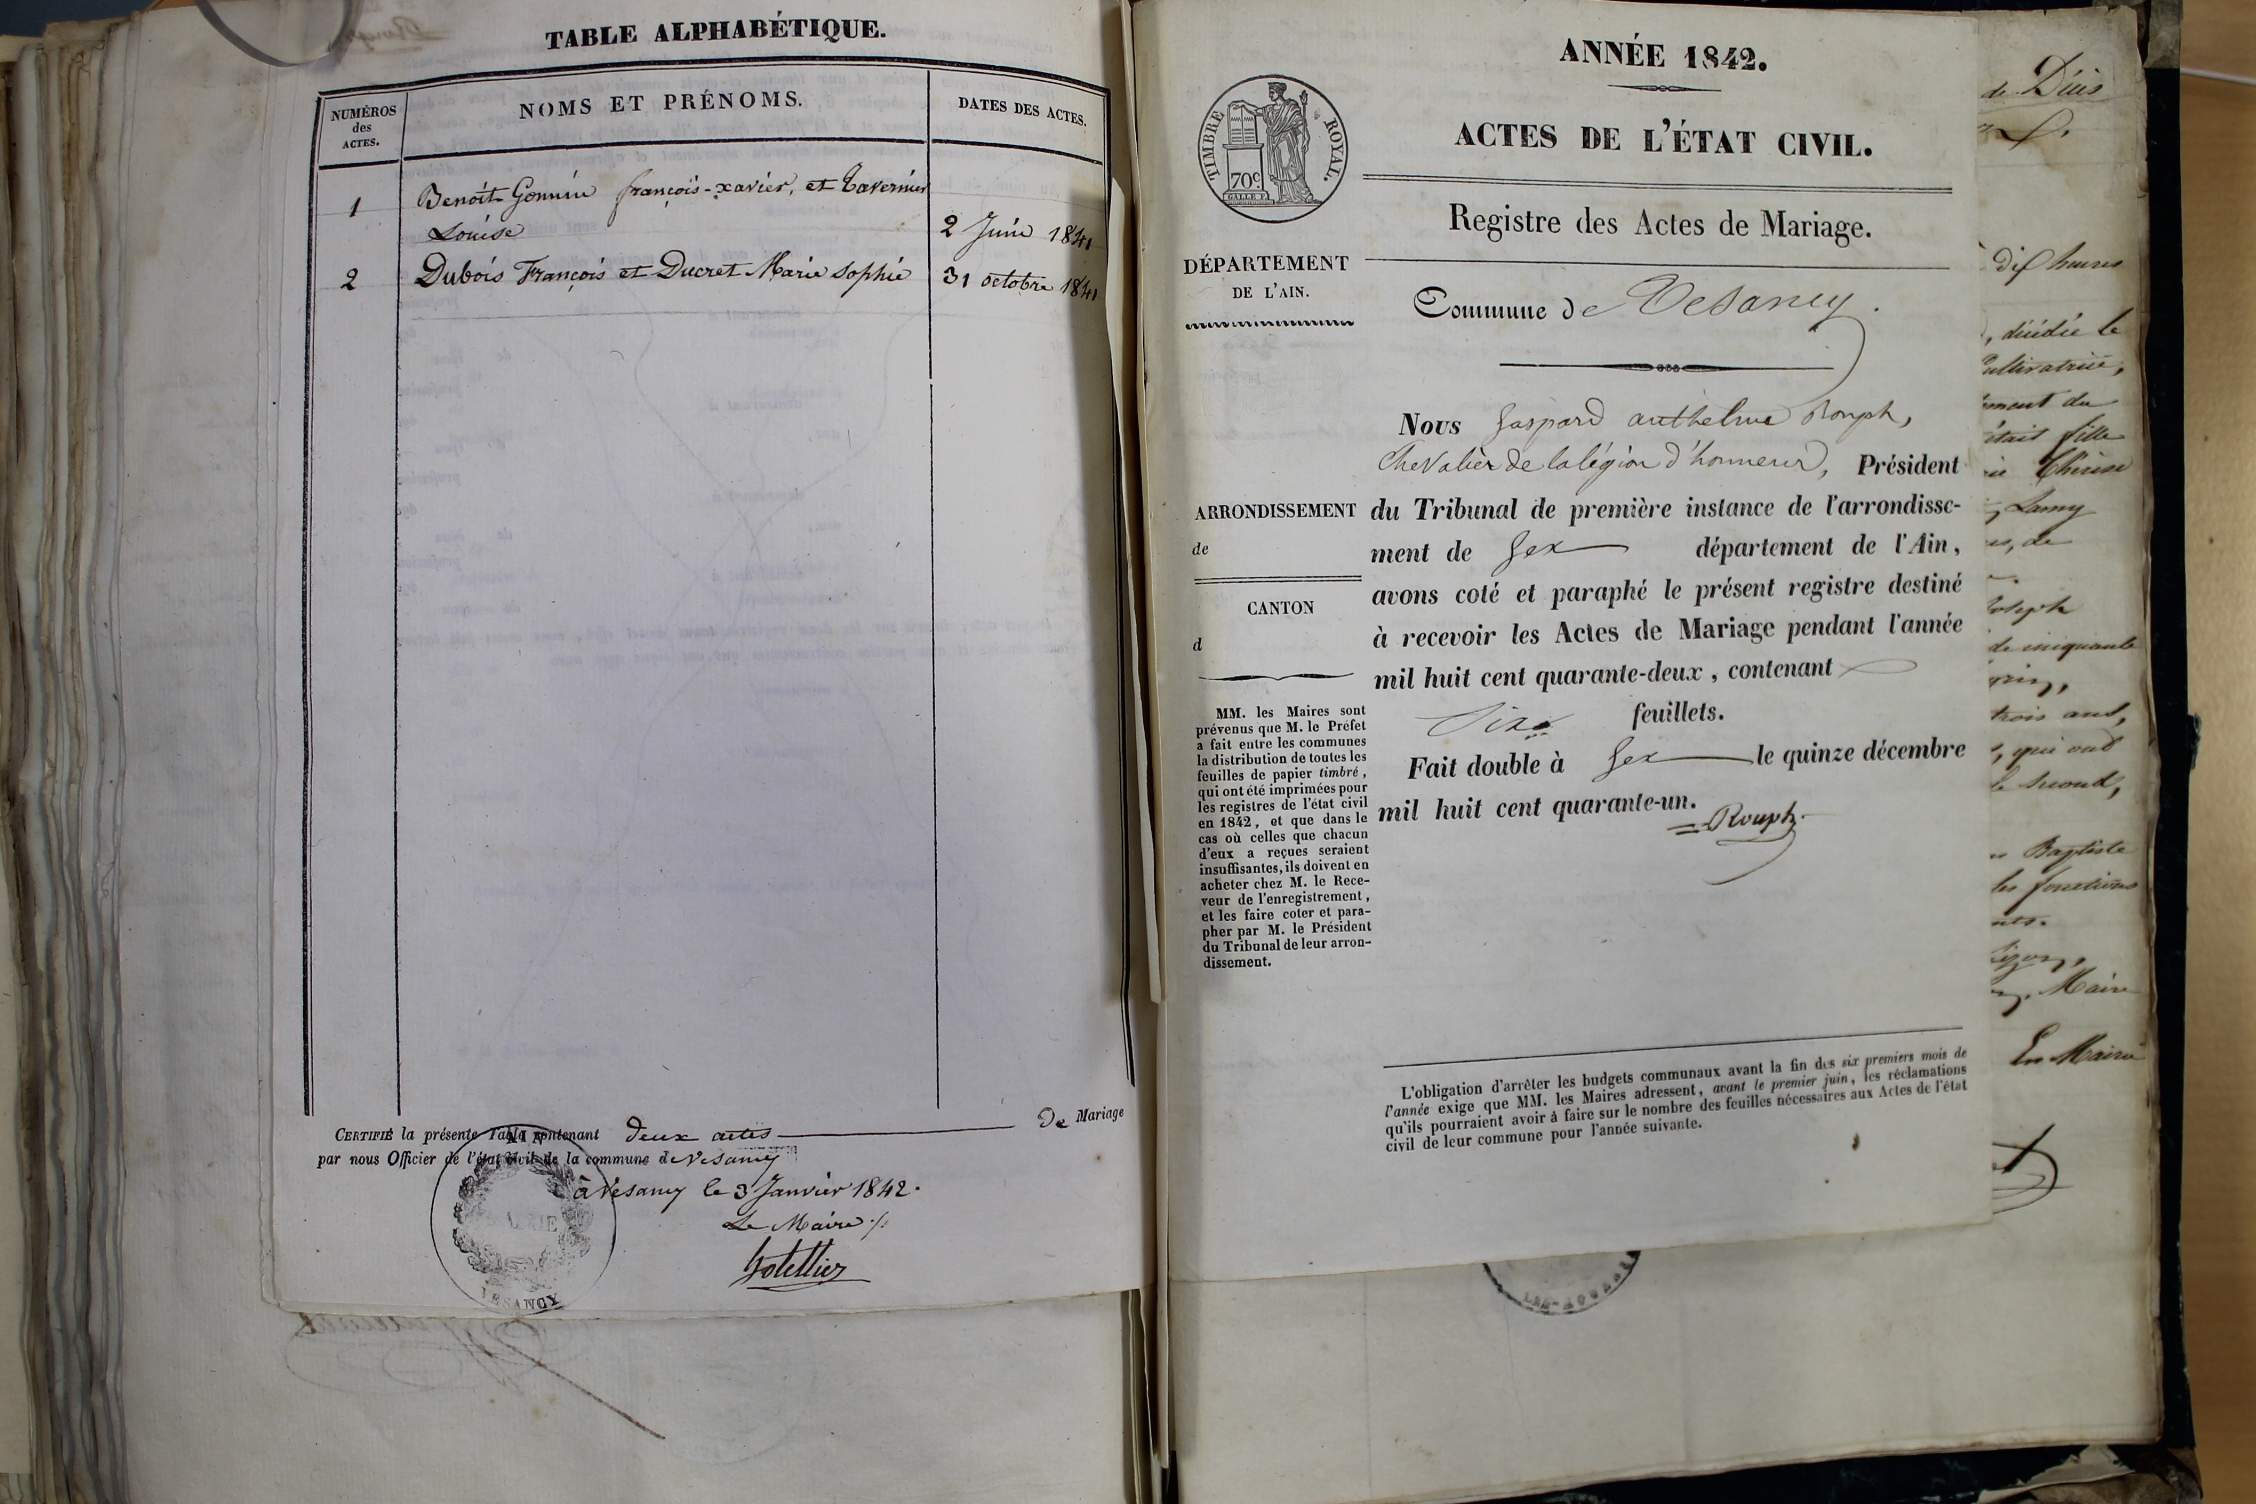 TABLE ALPHABÉTIQUE.
NUMÉROS
des
ACTES.
NOMS ET PRÉNOMS.
DATES DES ACTES.
1
Benoit Gonnin françois-xavier, et Tavernier
Louise
2 Juin 1841
2
Dubois François et Ducret Marie Sophie
31 octobre 1841
CERTIFIÉ la présente Table contenant deux actes De Mariage
par nous Officier de l'état civil de la commune de Vesancy
à Vesancy le 3 Janvier 1842.
Le Maire
AIN
MAIRIE
VESANCY
ANNÉE 1842.
TIMBRE ROYAL.
70c.
ACTES DE L'ÉTAT CIVIL.
Registre des Actes de Mariage.
DÉPARTEMENT
DE L'AIN.
Commune de Vesancy.
Nous Gaspard anthelme Rouph,
Chevalier de la légion d'honneur, Président
ARRONDISSEMENT
de
CANTON
d
du Tribunal de première instance de l'arrondisse-
ment de Gex département de l'Ain,
avons coté et paraphé le présent registre destiné
à recevoir les Actes de Mariage pendant l'année
mil huit cent quarante-deux, contenant
Six feuillets.
Fait double à Gex le quinze décembre
mil huit cent quarante-un.
Rouph
MM. les Maires sont
prévenus que M. le Préfet
a fait entre les communes
la distribution de toutes les
feuilles de papier timbré,
qui ont été imprimées pour
les registres de l'état civil
en 1842, et que dans le
cas où celles que chacun
d'eux a reçues seraient
insuffisantes, ils doivent en
acheter chez M. le Rece-
veur de l'enregistrement,
et les faire coter et para-
pher par M. le Président
du Tribunal de leur arron-
dissement.
L'obligation d'arrêter les budgets communaux avant la fin des six premiers mois de
l'année exige que MM. les Maires adressent, avant le premier juin, les réclamations
qu'ils pourraient avoir à faire sur le nombre des feuilles nécessaires aux Actes de l'état
civil de leur commune pour l'année suivante.
heures
, décédée le
cultivatrice,
du
était fille
Thérèse
Lamy
de
Joseph
de cinquante
trois ans,
, qui ont
le second,
Baptiste
les fonctions
Maire
En Mairie